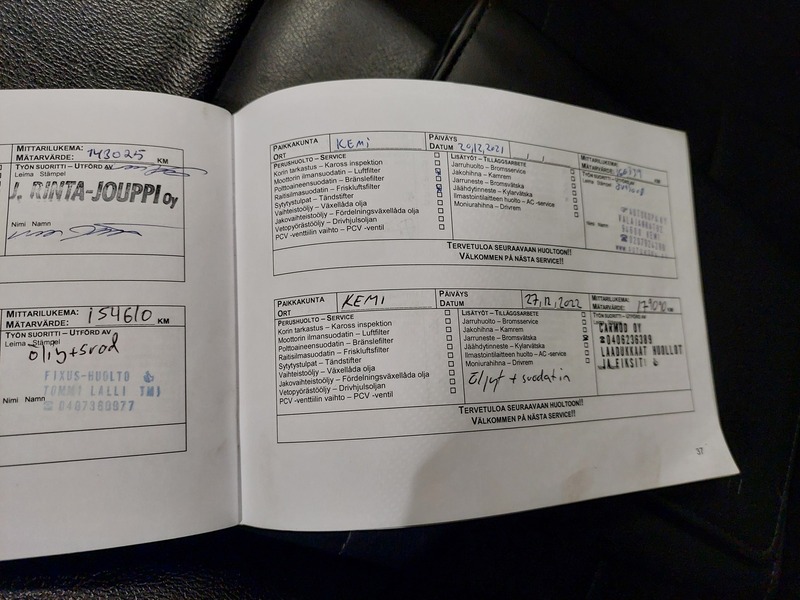 MITTARILUKEMA: 143025 KM
MÄTARVÄRDE:
TYÖN SUORITTI – UTFÖRD AV
Leima Stämpel
J. RINTA-JOUPPI OY
Nimi Namn
MITTARILUKEMA: 154610 KM
MÄTARVÄRDE:
TYÖN SUORITTI – UTFÖRD AV
Leima Stämpel
FIXUS-HUOLTO
TOMMI LALLI TMI
Nimi Namn
PAIKKAKUNTA KEMI
ORT
PÄIVÄYS
DATUM 20,12,2021
MITTARILUKEMA:
MÄTARVÄRDE:
PERUSHUOLTO – SERVICE
Korin tarkastus – Kaross inspektion
Moottorin ilmansuodatin – Luftfilter
Polttoaineensuodatin – Bränslefilter
Raitisilmasuodatin – Friskluftsfilter
Sytytystulpat – Tändstifter
Vaihteistoöljy – Växellåda olja
Jakovaihteistoöljy – Fördelningsväxellåda olja
Vetopyörästööljy – Drivhjulsolja
PCV -venttiilin vaihto – PCV -ventil
LISÄTYÖT – TILLÄGGSARBETE
Jarruhuolto – Bromsservice
Jakohihna – Kamrem
Jarruneste – Bromsvätska
Jäähdytinneste – Kylarvätska
Ilmastointilaitteen huolto – AC -service
Moniurahihna – Drivrem
TYÖN SUORITTI – UTFÖRD AV
Leima Stämpel
Nimi Namn
TERVETULOA SEURAAVAAN HUOLTOON!!
VÄLKOMMEN PÅ NÄSTA SERVICE!!
PAIKKAKUNTA KEMI
ORT
PÄIVÄYS
DATUM 27,12,2022
MITTARILUKEMA:
MÄTARVÄRDE:
PERUSHUOLTO – SERVICE
Korin tarkastus – Kaross inspektion
Moottorin ilmansuodatin – Luftfilter
Polttoaineensuodatin – Bränslefilter
Raitisilmasuodatin – Friskluftsfilter
Sytytystulpat – Tändstifter
Vaihteistoöljy – Växellåda olja
Jakovaihteistoöljy – Fördelningsväxellåda olja
Vetopyörästööljy – Drivhjulsolja
PCV -venttiilin vaihto – PCV -ventil
LISÄTYÖT – TILLÄGGSARBETE
Jarruhuolto – Bromsservice
Jakohihna – Kamrem
Jarruneste – Bromsvätska
Jäähdytinneste – Kylarvätska
Ilmastointilaitteen huolto – AC -service
Moniurahihna – Drivrem
Öljyt + suodatin
TYÖN SUORITTI – UTFÖRD AV
CARMOO OY
0406236389
LAADUKKAAT HUOLLOT
JA FIKSIT!
TERVETULOA SEURAAVAAN HUOLTOON!!
VÄLKOMMEN PÅ NÄSTA SERVICE!!
37